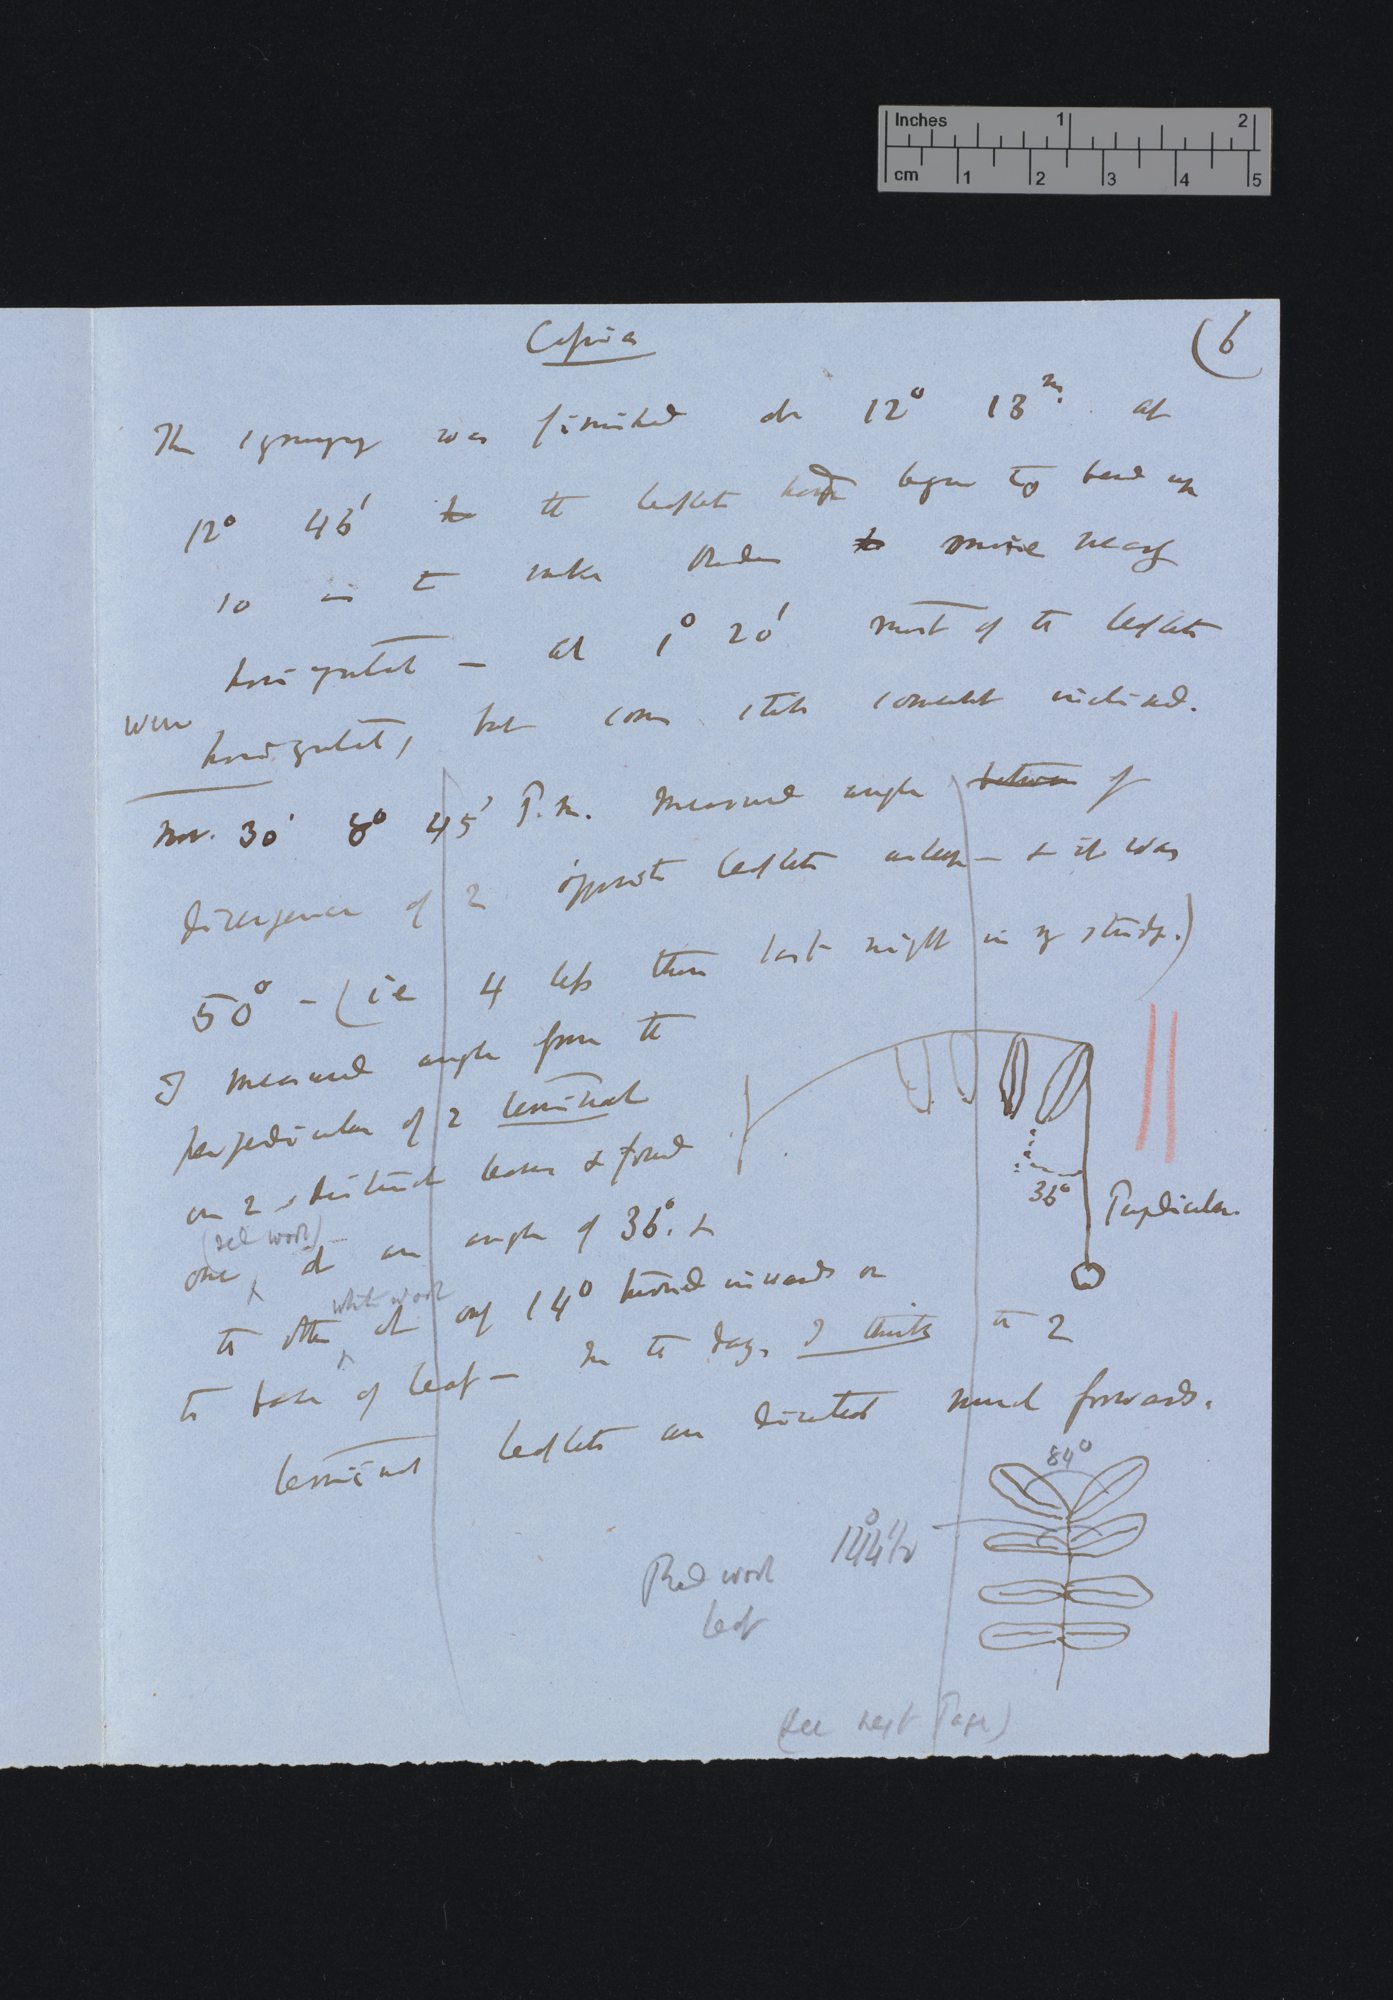 Inches 1 2
cm 1 2 3 4 5
Cassia
(6
The syringing was finished at 12° 13m. at
12° 43' the leaflets had begun to bend up
so as to make them more nearly
horizontal — at 1° 20' most of the leaflets
were horizontal, but some still somewhat inclined.
Nov. 30' 8° 45' P.m. Measured angle between of
divergence of 2 opposite leaflets asleep — & it was
50° — (ie 4 less than last night in my study.)
I measured angle from the
perpendicular of 2 terminal
on 2 distinct leaves & found
(red wool)
one at an angle of 36°. &
white wool
the other at only 14° turned inwards on
to base of leaf — In the day, I think the 2
terminal leaflets are directed much forwards.
36°
Perpendicular
84°
144 1/2
Red wool
leaf
(see next Page)